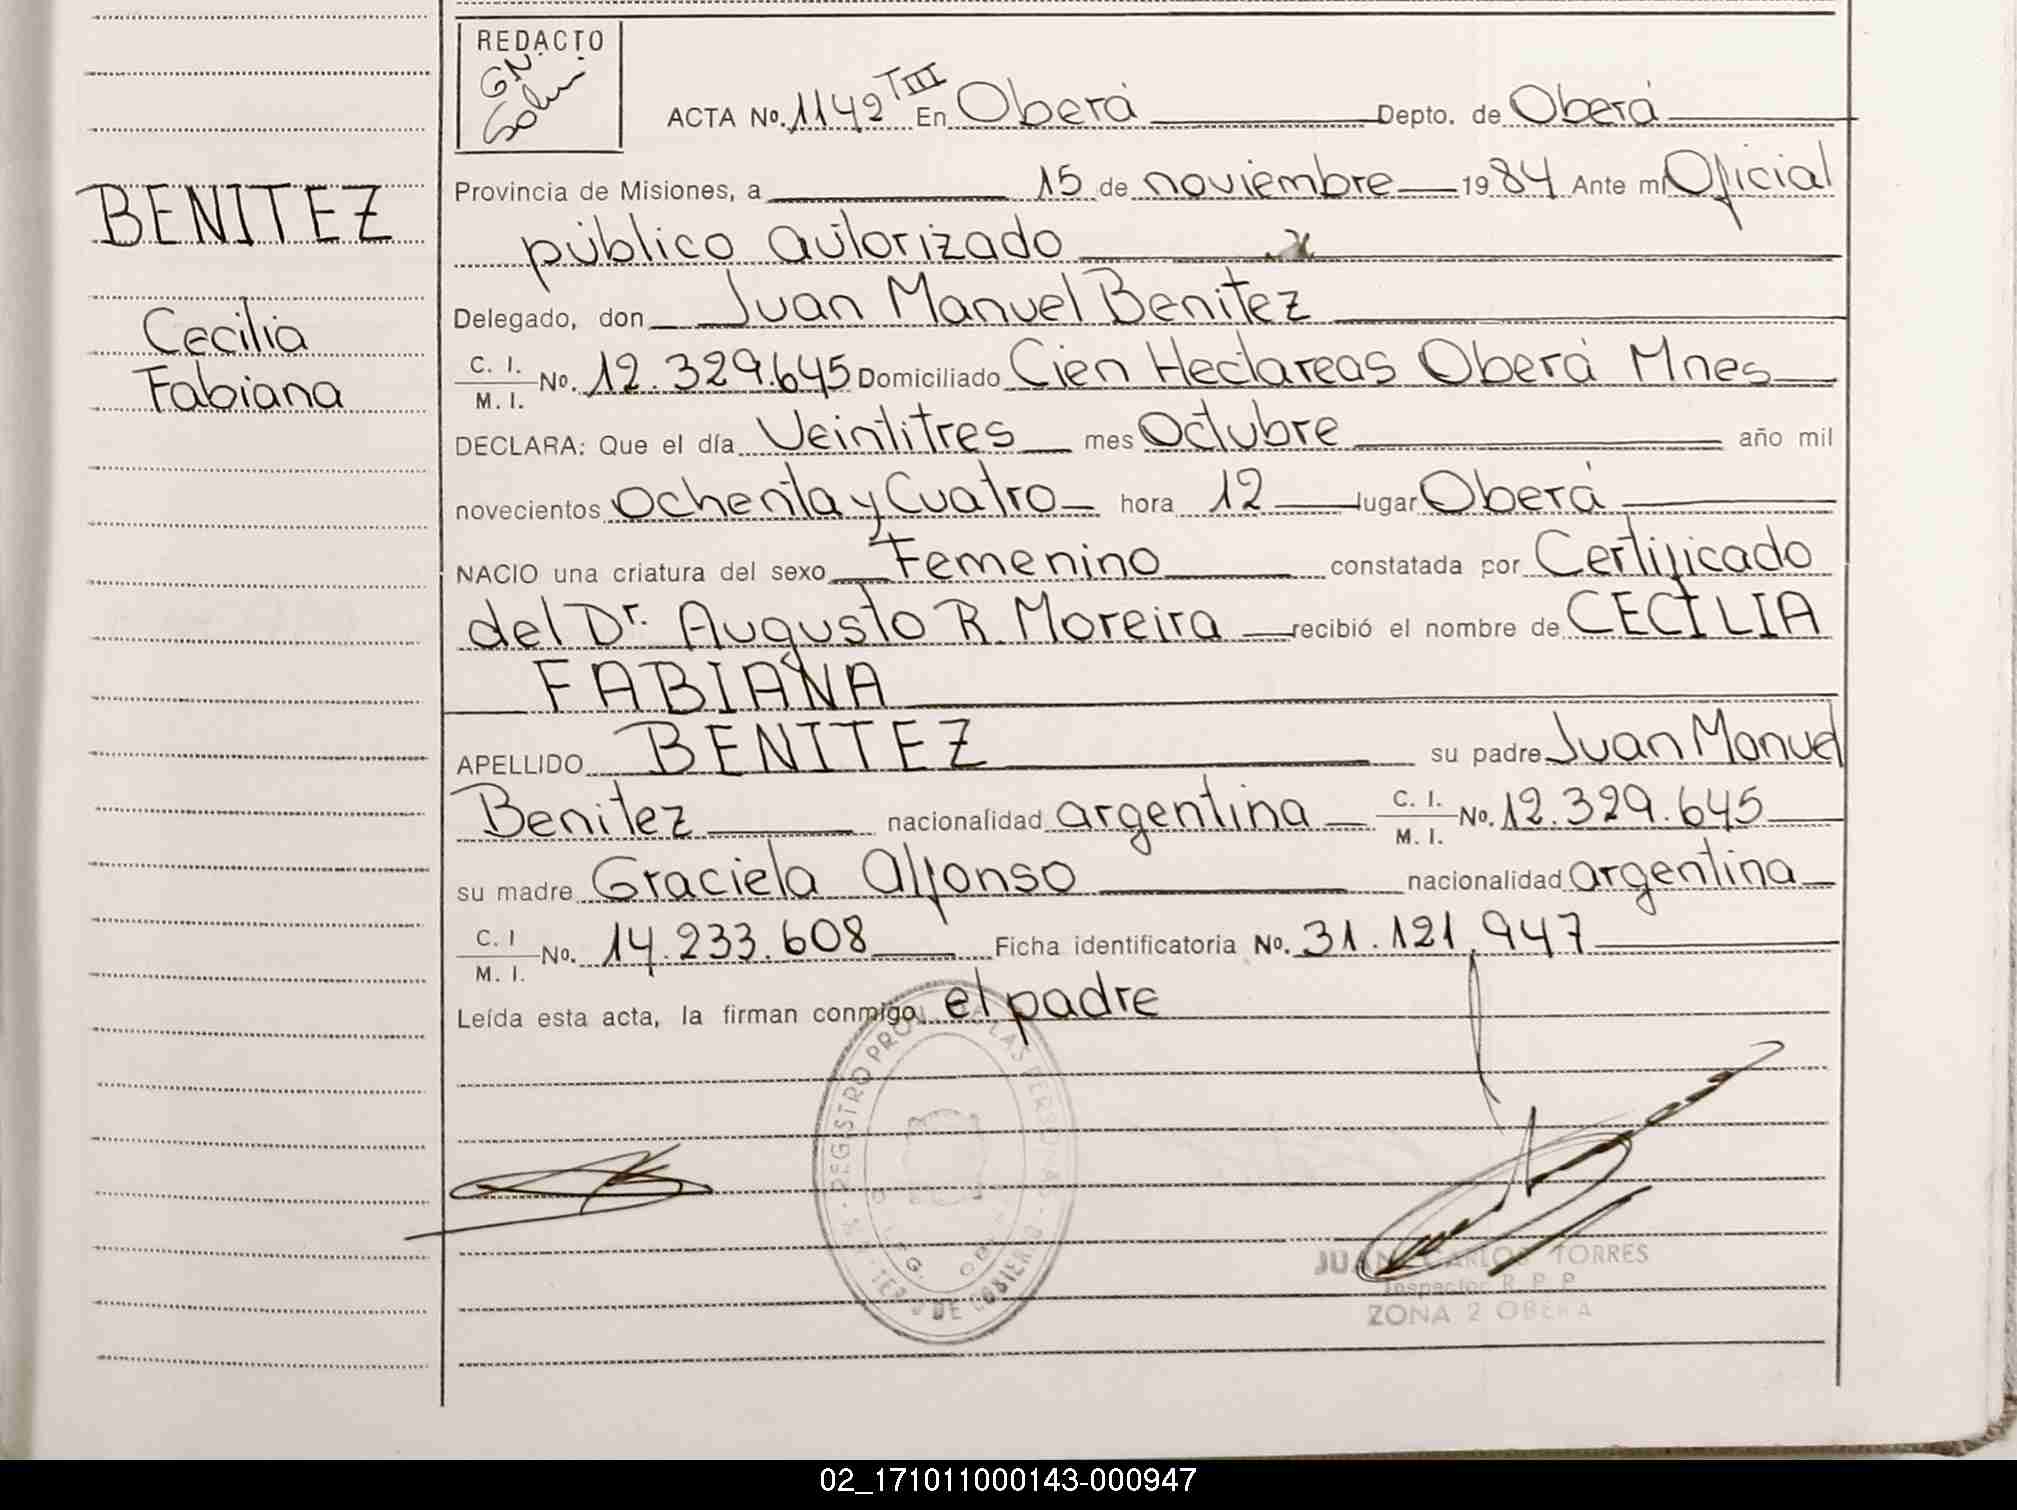 REDACTO
ACTA No. 1142 TIII En Oberá Depto. de Oberá
Provincia de Misiones, a 15 de noviembre 1984 Ante mi Oficial
público autorizado
Delegado, don Juan Manuel Benitez
C. I.
M. I. No. 12.329.645 Domiciliado Cien Hectareas Oberá Mnes
DECLARA: Que el día Veintitres mes Octubre año mil
novecientos Ochenta y Cuatro hora 12 lugar Oberá
NACIO una criatura del sexo Femenino constatada por Certificado
del Dr. Augusto R. Moreira recibió el nombre de CECILIA
FABIANA
APELLIDO BENITEZ su padre Juan Manuel
Benitez nacionalidad argentina C. I. M. I. No. 12.329.645
su madre Graciela Alfonso nacionalidad argentina
C. I
M. I. No. 14.233.608 Ficha identificatoria No. 31.121.947
Leída esta acta, la firman conmigo el padre
BENITEZ
Cecilia
Fabiana
REGISTRO PROV. DE LAS PERSONAS
DE GOBIERNO
JUAN CARLOS TORRES
Inspector R. P. P.
ZONA 2 OBERA
02_171011000143-000947